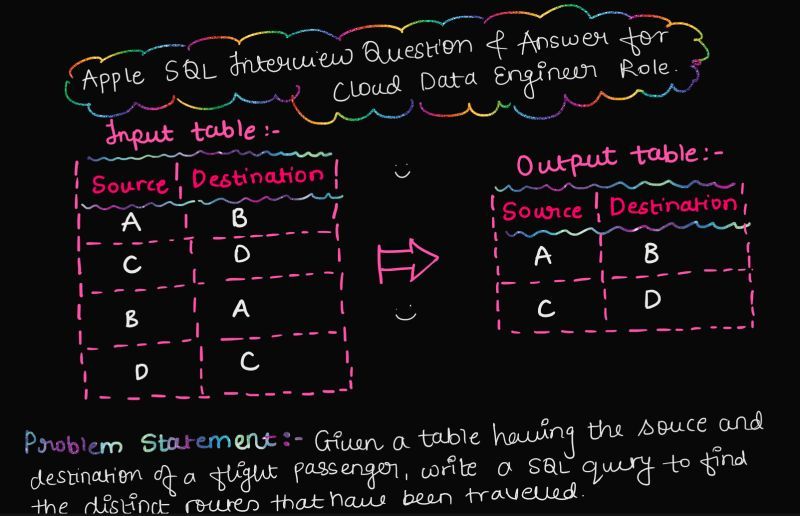 Apple SQL Interview Question & Answer for
Cloud Data Engineer Role.
Input table:-
Source Destination
A B
C D
B A
D C
Output table:-
Source Destination
A B
C D
Problem Statement:- Given a table having the souce and
destination of a flight passenger, write a SQL query to find
the distinct routes that have been travelled.